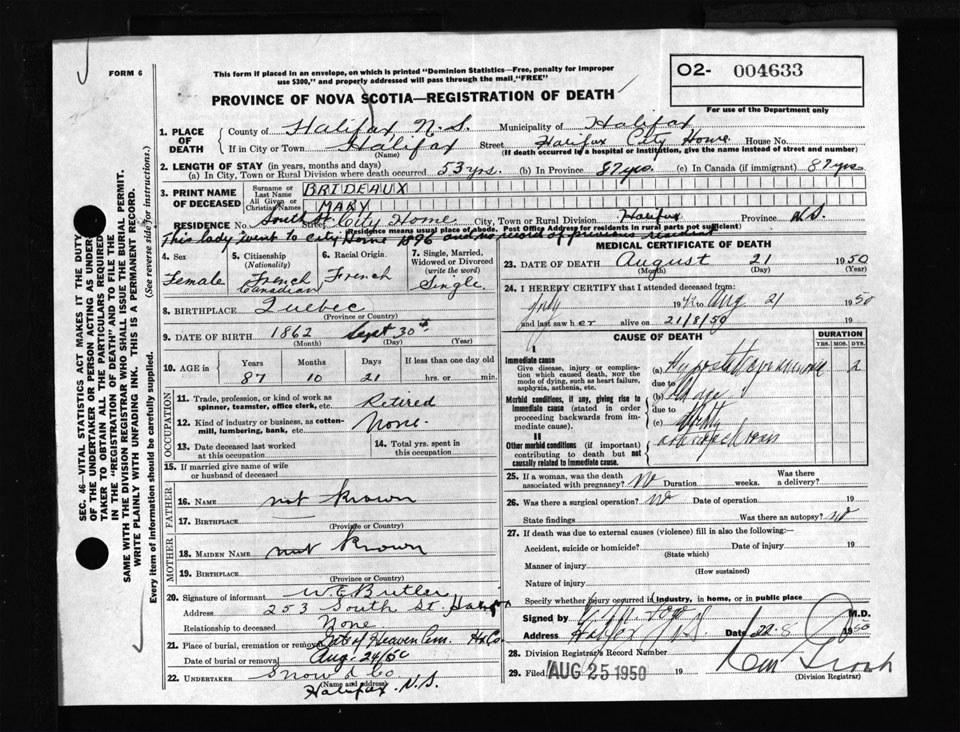 FORM 6
This form if placed in an envelope, on which is printed "Dominion Statistics—Free, penalty for improper
use $300," and properly addressed will pass through the mail, "FREE"
O2- 004633
For use of the Department only
PROVINCE OF NOVA SCOTIA—REGISTRATION OF DEATH
1. PLACE OF DEATH
County of Halifax N.S. Municipality of Halifax
If in City or Town Halifax Street Halifax City Home House No.
(Name) (If death occurred in a hospital or institution, give the name instead of street and number)
2. LENGTH OF STAY (in years, months and days)
(a) In City, Town or Rural Division where death occurred 53 yrs. (b) In Province 87 yrs. (c) In Canada (if immigrant) 87 yrs
3. PRINT NAME OF DECEASED
Surname or Last Name BRIDEAUX
All Given or Christian Names MARY
RESIDENCE No. South St. Street, City Home City, Town or Rural Division Halifax Province N.S.
(Residence means usual place of abode. Post Office Address for residents in rural parts not sufficient)
This lady went to City Home 1896 and no record of previous resident
4. Sex
Female
5. Citizenship
(Nationality)
French
Canadian
6. Racial Origin
French
7. Single, Married,
Widowed or Divorced
(write the word)
Single
8. BIRTHPLACE Quebec
(Province or Country)
9. DATE OF BIRTH 1862 Sept 30th
(Month) (Day) (Year)
10. AGE in
Years Months Days If less than one day old
87 10 21 hrs. or min.
OCCUPATION
11. Trade, profession, or kind of work as
spinner, teamster, office clerk, etc. Retired
12. Kind of industry or business, as cotton-
mill, lumbering, bank, etc. None.
13. Date deceased last worked
at this occupation
14. Total yrs. spent in
this occupation
15. If married give name of wife
or husband of deceased
FATHER
16. Name not known
17. Birthplace
(Province or Country)
MOTHER
18. Maiden Name not known
19. Birthplace
(Province or Country)
20. Signature of informant W. E. Butler
Address 253 South St. Halifax
Relationship to deceased None
21. Place of burial, cremation or removal Gate of Heaven Cem. Hx Co.
Date of burial or removal Aug. 24/50
22. Undertaker Snow & Co
(Name and address)
Halifax N.S.
MEDICAL CERTIFICATE OF DEATH
23. DATE OF DEATH August 21 1950
(Month) (Day) (Year)
24. I HEREBY CERTIFY that I attended deceased from:
July 194 to Aug 21 1950
and last saw her alive on 21/8/50 19
CAUSE OF DEATH
DURATION
YRS. MOS. DYS.
I
Immediate cause
Give disease, injury or complica-
tion which caused death, NOT the
mode of dying, such as heart failure,
asphyxia, asthenia, etc.
(a) 2
due to
Morbid conditions, if any, giving rise to
immediate cause (stated in order
proceeding backwards from im-
mediate cause).
(b)
due to
(c)
II
Other morbid conditions (if important)
contributing to death but not
causally related to immediate cause.
25. If a woman, was the death
associated with pregnancy? No Duration weeks. Was there a delivery?
26. Was there a surgical operation? No Date of operation 19
State findings Was there an autopsy? No
27. If death was due to external causes (violence) fill in also the following:—
Accident, suicide or homicide? Date of injury 19
(State which)
Manner of injury
(How sustained)
Nature of injury
Specify whether injury occurred in industry, in home, or in public place
Signed by M.D.
Address Halifax Date 22-8 1950
28. Division Registrar's Record Number
29. Filed AUG 25 1950 19
(Division Registrar)
SEC. 46—VITAL STATISTICS ACT MAKES IT THE DUTY
OF THE UNDERTAKER OR PERSON ACTING AS UNDER-
TAKER TO OBTAIN ALL THE PARTICULARS REQUIRED
IN THE "REGISTRATION OF DEATH" AND TO FILE THE
SAME WITH THE DIVISION REGISTRAR WHO SHALL ISSUE THE BURIAL PERMIT.
WRITE PLAINLY WITH UNFADING INK. THIS IS A PERMANENT RECORD.
Every item of information should be carefully supplied. (See reverse side for instructions.)